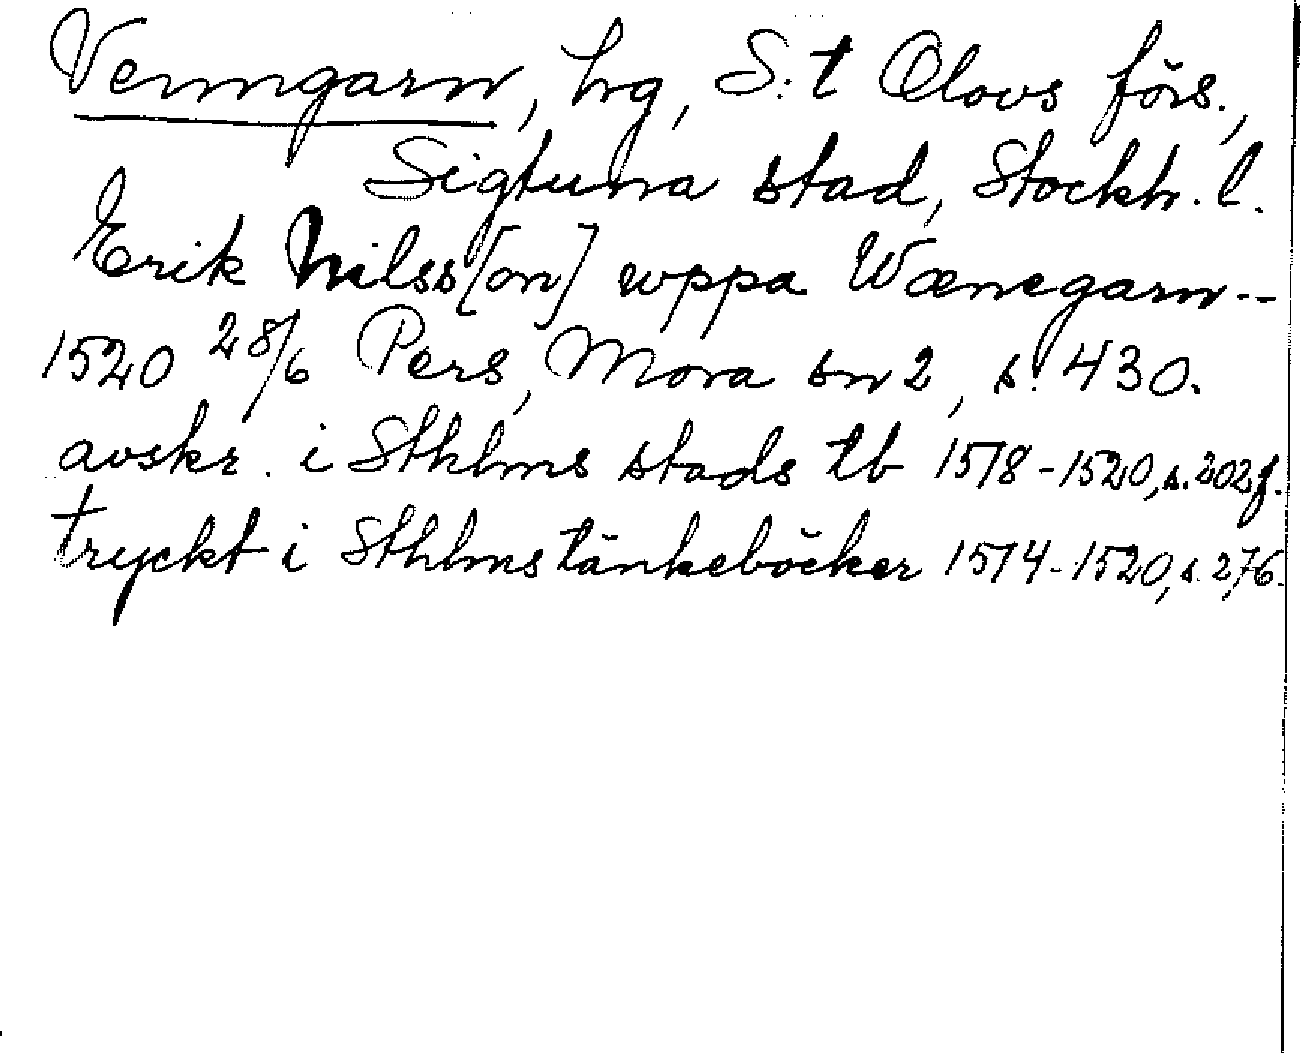 Venngarn, hg, S:t Olovs förs.,
Sigtuna stad, Stockh. l.
Erik Nilss[on] wppa Wænegarn--
1520 28/6 Pers, Mora sn 2, s. 430.
avskr. i Sthlms stads tb 1518-1520, s. 202 f.
tryckt i Sthlms tänkeböcker 1514-1520, s. 276.